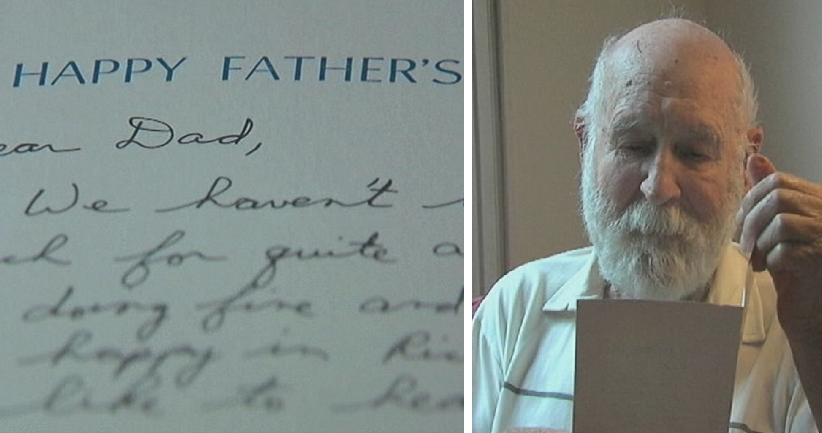 HAPPY FATHER'S
ear Dad,
We haven't
ch for quite a
doing fine and
happy in Ric
like to hea